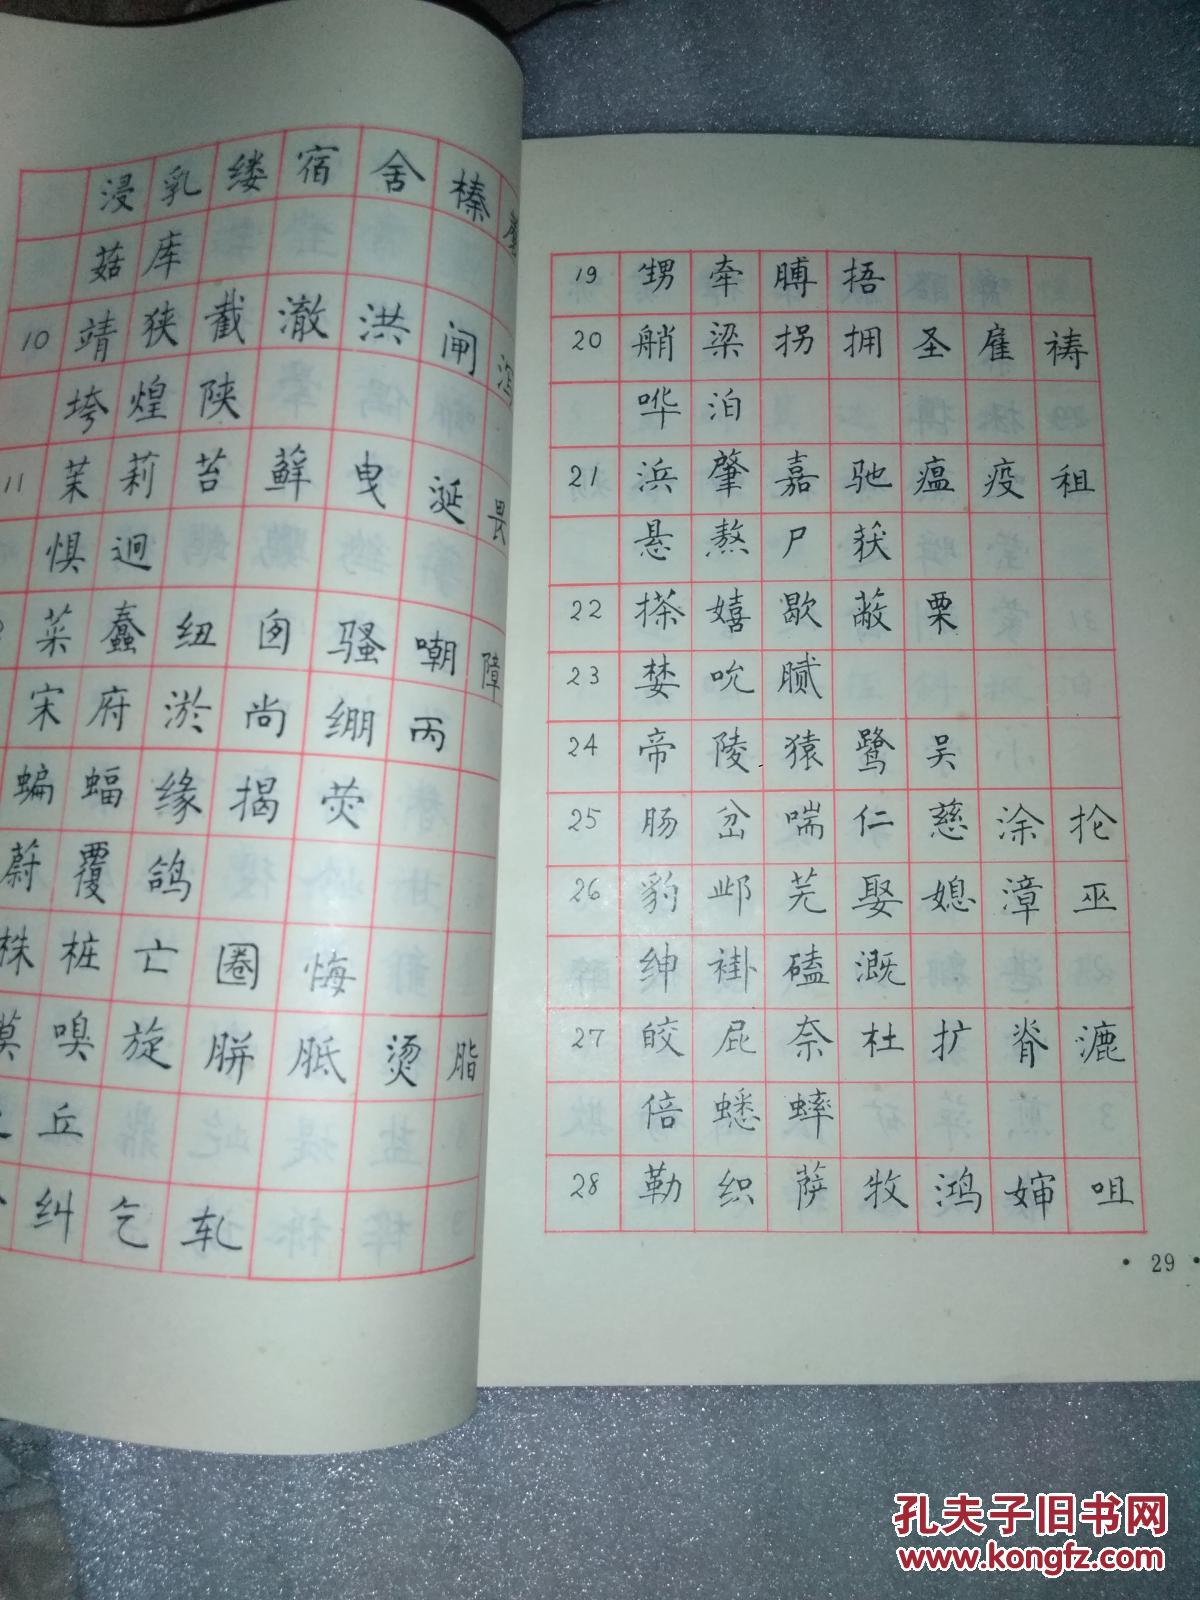 浸乳缕宿舍榛
菇库
10 靖狭截澈洪闸泻
垮煌陕
11 茉莉苔藓曳涎畏
惧迥
菜蠢纽囱骚嘲障
宋府淤尚绷丙
蝙蝠缘揭荧
蔚覆鸽
株桩亡圈悔
嗅旋胼胝烫脂
丘
纠乞轧
19 甥牵膊捂
20 艄梁拐拥圣雇祷
哗泊
21 浜肇嘉驰瘟疫租
悬熬尸获
22 搽嬉歇蔽栗
23 婪吮腻
24 帝陵猿鹭吴
25 肠岔喘仁慈涂抡
26 豹邺芜娶媳漳巫
绅褂磕溉
27 皎屁奈杜扩脊漉
倍蟋蟀
28 勒织萨牧鸿婶咀
·29·
孔夫子旧书网
www.kongfz.com